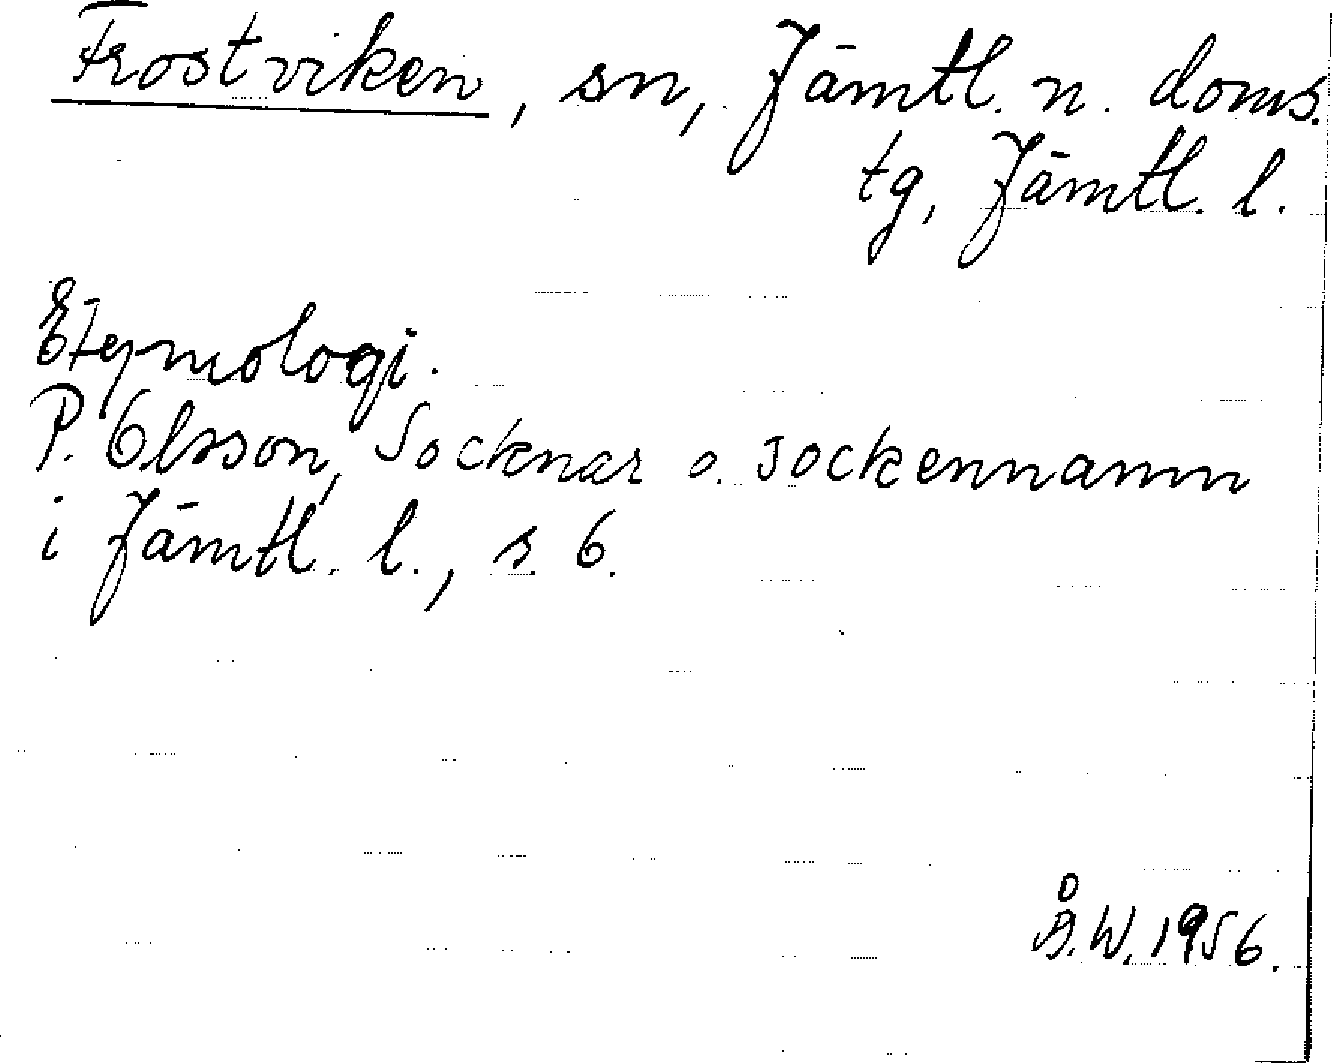 Frostviken, sn, Jämtl. n. doms.
tg, Jämtl. l.
Etymologi.
P. Olsson, Socknar o. sockennamn
i Jämtl. l., s. 6.
Å.W. 1956.